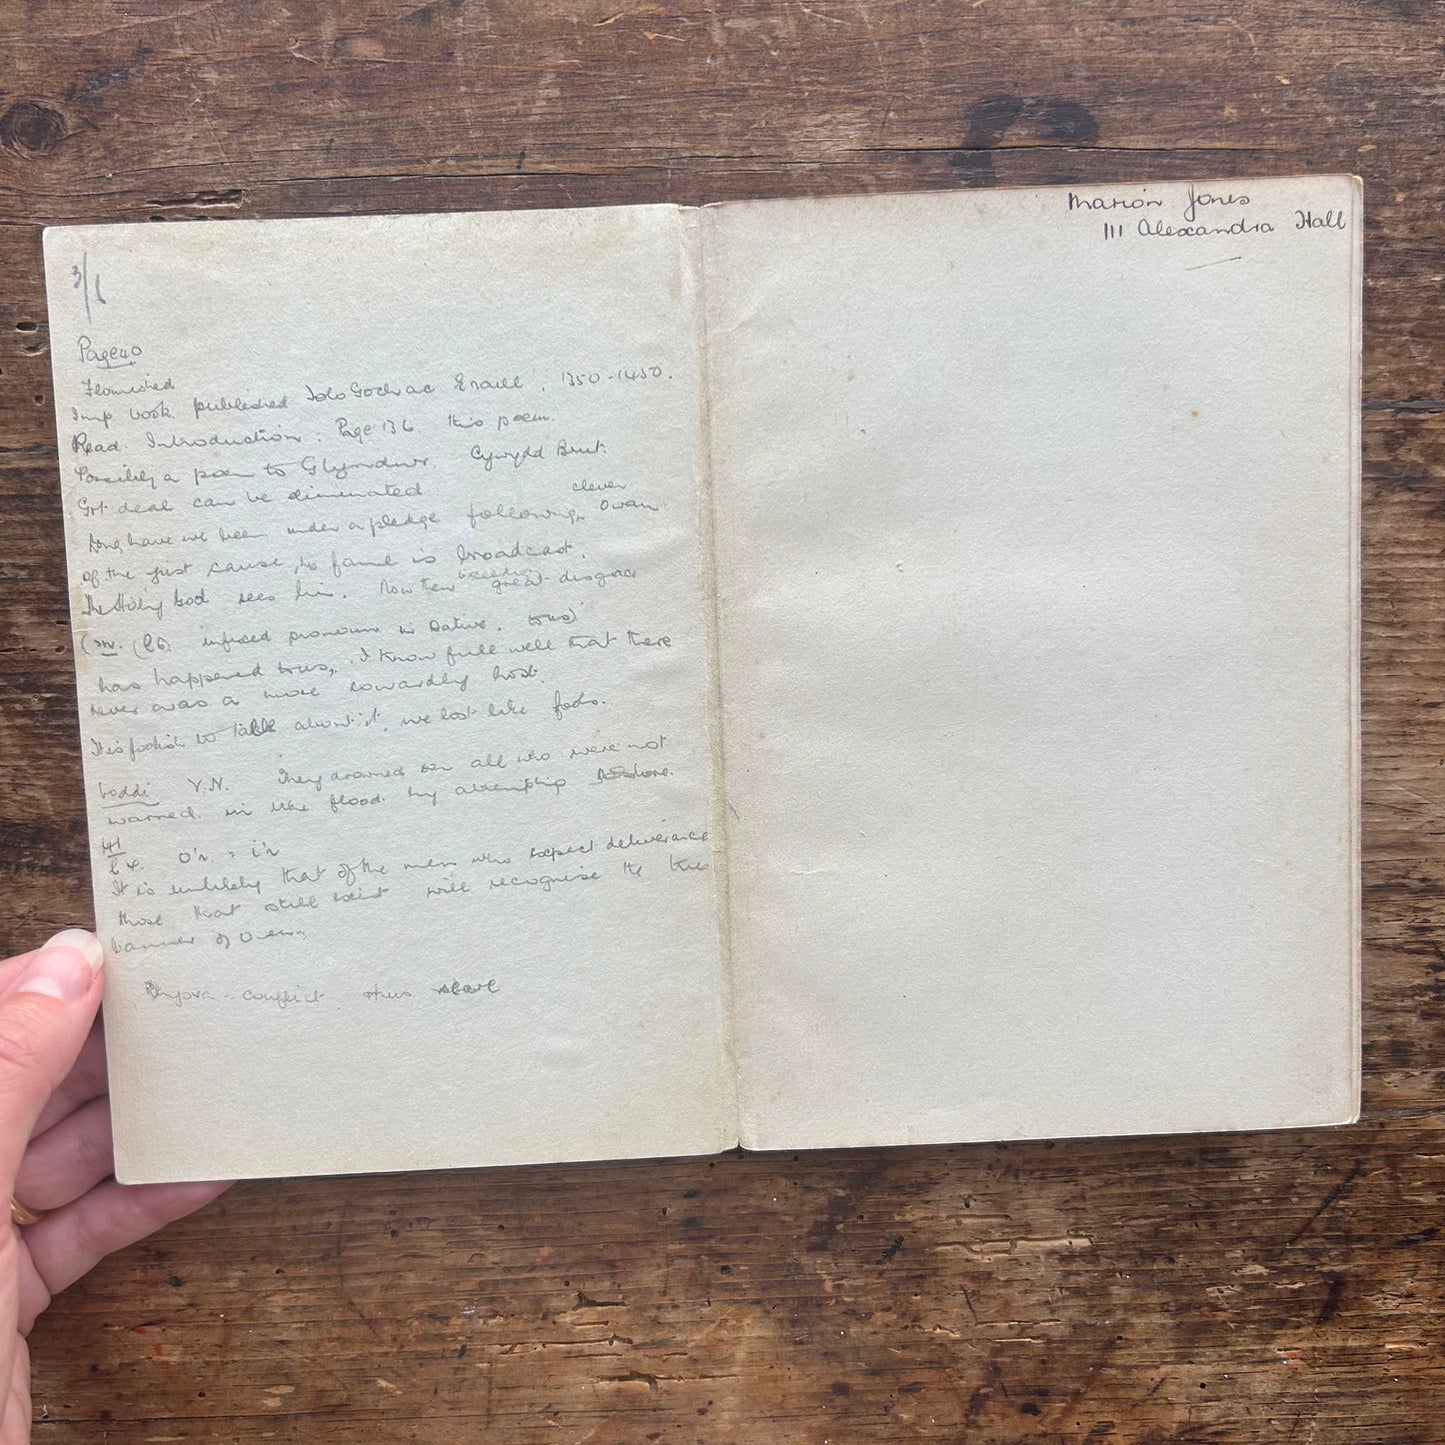 3/6
Page 40
Flourished
Imp book. published Iolo Goch ac Eraill. 1350-1450.
Read. Introduction. Page 136. this poem.
Possibly a poem to Glyndwr. Cywydd Brut.
Grt. deal can be eliminated
clever
Long have we been under a pledge following Owain.
of the just cause, his fame is broadcast.
The Holy God sees him. Now then great disgrace
infixed pronoun in Dative.
has happened thus, I know full well that there
never was a more cowardly host.
It is foolish to talk about it, we lost like fools.
boddi V.N. They drowned all who were not
warned. in the flood. by attempting
41
l 4. o'r = i'r
It is unlikely that of the men who expect deliverance
those that still exist will recognise the true
banner of Owen.
conflict thus
Marion Jones
111 Alexandra Hall